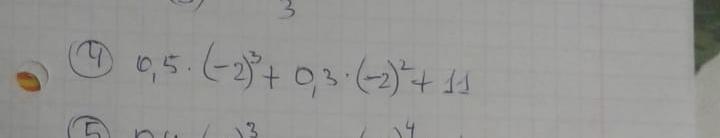 3
④ 0,5 · (-2)³ + 0,3 · (-2)² + 11
⑤